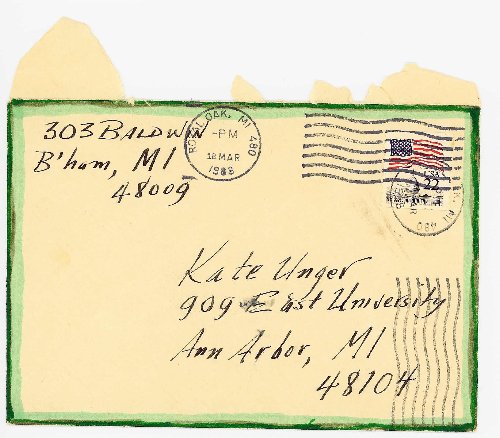 303 BALDWIN
B'ham, MI
48009
ROYAL OAK, MI 480
-PM
18 MAR
1988
USA
22
Kate Unger
909 East University
Ann Arbor, MI
48104